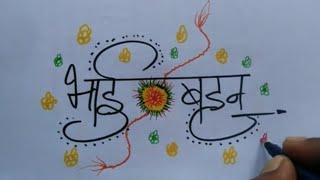 भाई बहन